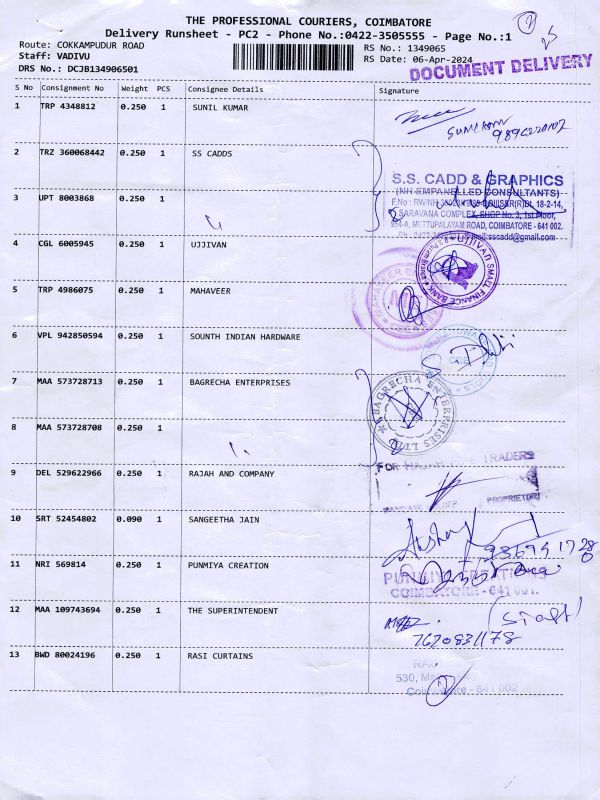 THE PROFESSIONAL COURIERS, COIMBATORE
Delivery Runsheet - PC2 - Phone No.:0422-3505555 - Page No.:1
Route: COKKAMPUDUR ROAD
Staff: VADIVU
DRS No.: DCJB134906501
RS No.: 1349065
RS Date: 06-Apr-2024
DOCUMENT DELIVERY
S No Consignment No Weight PCS Consignee Details Signature
1 TRP 4348812 0.250 1 SUNIL KUMAR
2 TRZ 360068442 0.250 1 SS CADDS
S.S. CADD & GRAPHICS
(NH EMPANELLED CONSULTANTS)
3 UPT 8003868 0.250 1
SARAVANA COMPLEX, SHOP No. 3, 1st Floor,
METTUPALAYAM ROAD, COIMBATORE - 641 002.
4 CGL 6005945 0.250 1 UJJIVAN
UJJIVAN SMALL FINANCE BANK
5 TRP 4986075 0.250 1 MAHAVEER
6 VPL 942850594 0.250 1 SOUNTH INDIAN HARDWARE
7 MAA 573728713 0.250 1 BAGRECHA ENTERPRISES
BAGRECHA ENTERPRISES LTD
8 MAA 573728708 0.250 1
FOR TRADERS
9 DEL 529622966 0.250 1 RAJAH AND COMPANY
PROPRIETOR
10 SRT 52454802 0.090 1 SANGEETHA JAIN
Akshay
11 NRI 569814 0.250 1 PUNMIYA CREATION
COIMBATORE - 641 001.
12 MAA 109743694 0.250 1 THE SUPERINTENDENT
(Staff)
7620831178
13 BWD 80024196 0.250 1 RASI CURTAINS
530,
641 002